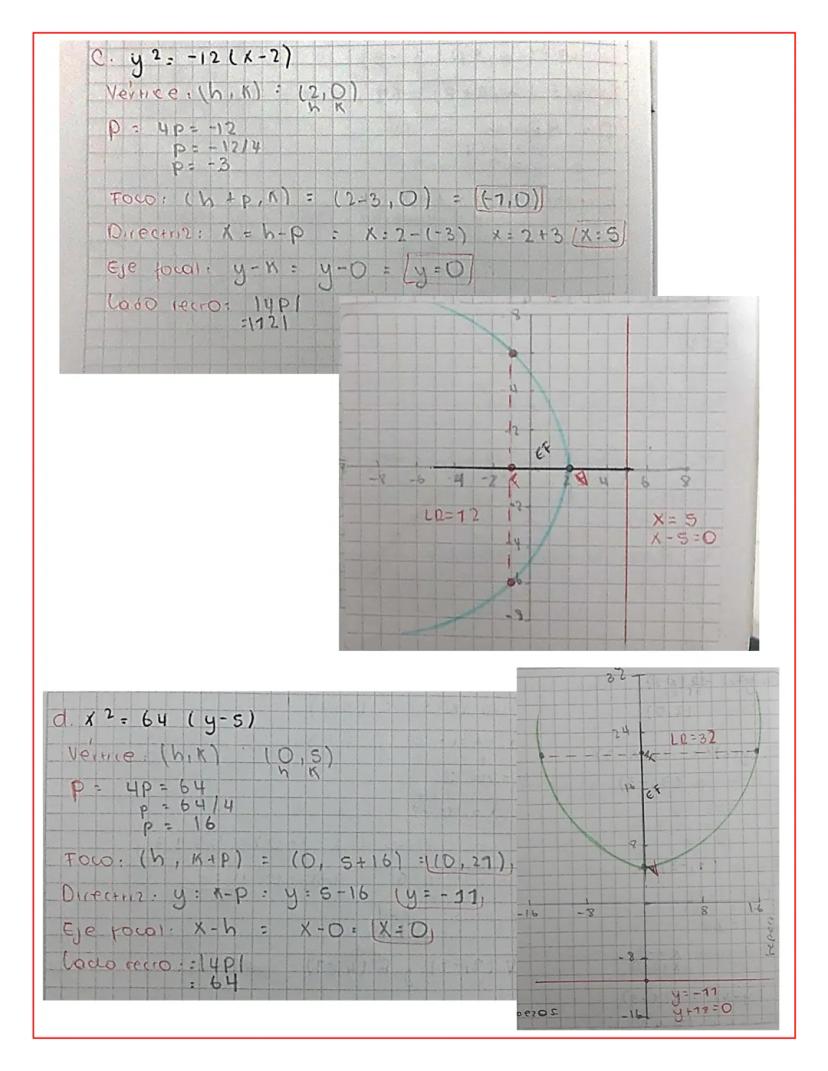 C. y² = -12 (x-2)
Vértice: (h, K) = (2,0)
h K
P = 4p = -12
p = -12/4
p = -3
Foco: (h+p, K) = (2-3, 0) = (-1,0)
Directriz: x = h-p = x = 2-(-3) x = 2+3 x = 5
Eje focal: y-K = y-0 = y=0
Lado recto: |4p|
=|12|
8
4
2
EF
-8 -6 -4 -2 2 4 6 8
LR=12
-2
-4
-6
-8
x = 5
x-5=0
32
24
LR=32
16
EF
8
-16 -8 8 16
-8
-16
y=-11
y+11=0
d. x² = 64 (y-5)
Vértice: (h,K) (0,5)
h K
P = 4p = 64
p = 64/4
p = 16
Foco: (h, K+p) = (0, 5+16) = (0,21)
Directriz: y = K-p = y = 5-16 y = -11
Eje focal: x-h = x-0 = x=0
Lado recto: =|4p|
= 64